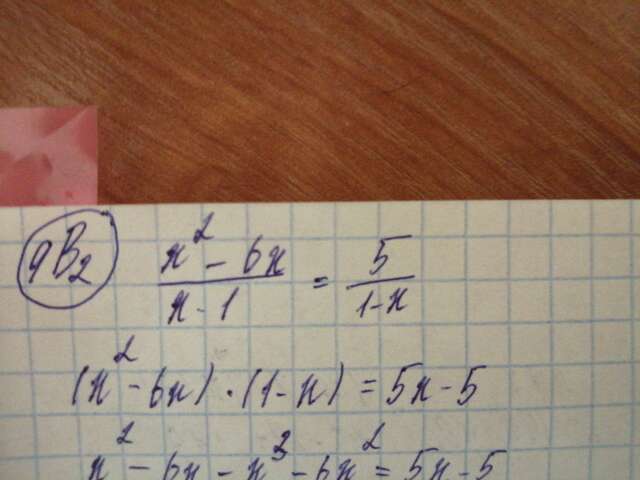 9B2 (x² - 6x)/(x - 1) = 5/(1-x)
(x² - 6x) · (1 - x) = 5x - 5
x² - 6x - x³ - 6x² = 5x - 5